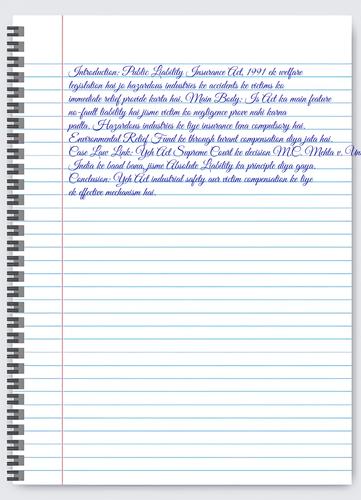 Introduction: Public Liability Insurance Act, 1991 ek welfare
legislation hai jo hazardous industries ke accidents ke victims ko
immediate relief provide karta hai. Main Body: Is Act ka main feature
no-fault liability hai jisme victim ko negligence prove nahi karna
padta. Hazardous industries ke liye insurance lena compulsory hai.
Environmental Relief Fund ke through turant compensation diya jata hai.
Case Law Link: Yeh Act Supreme Court ke decision M.C. Mehta v. Un
India ke baad bana, jisme Absolute Liability ka principle diya gaya.
Conclusion: Yeh Act industrial safety aur victim compensation ke liye
ek effective mechanism hai.